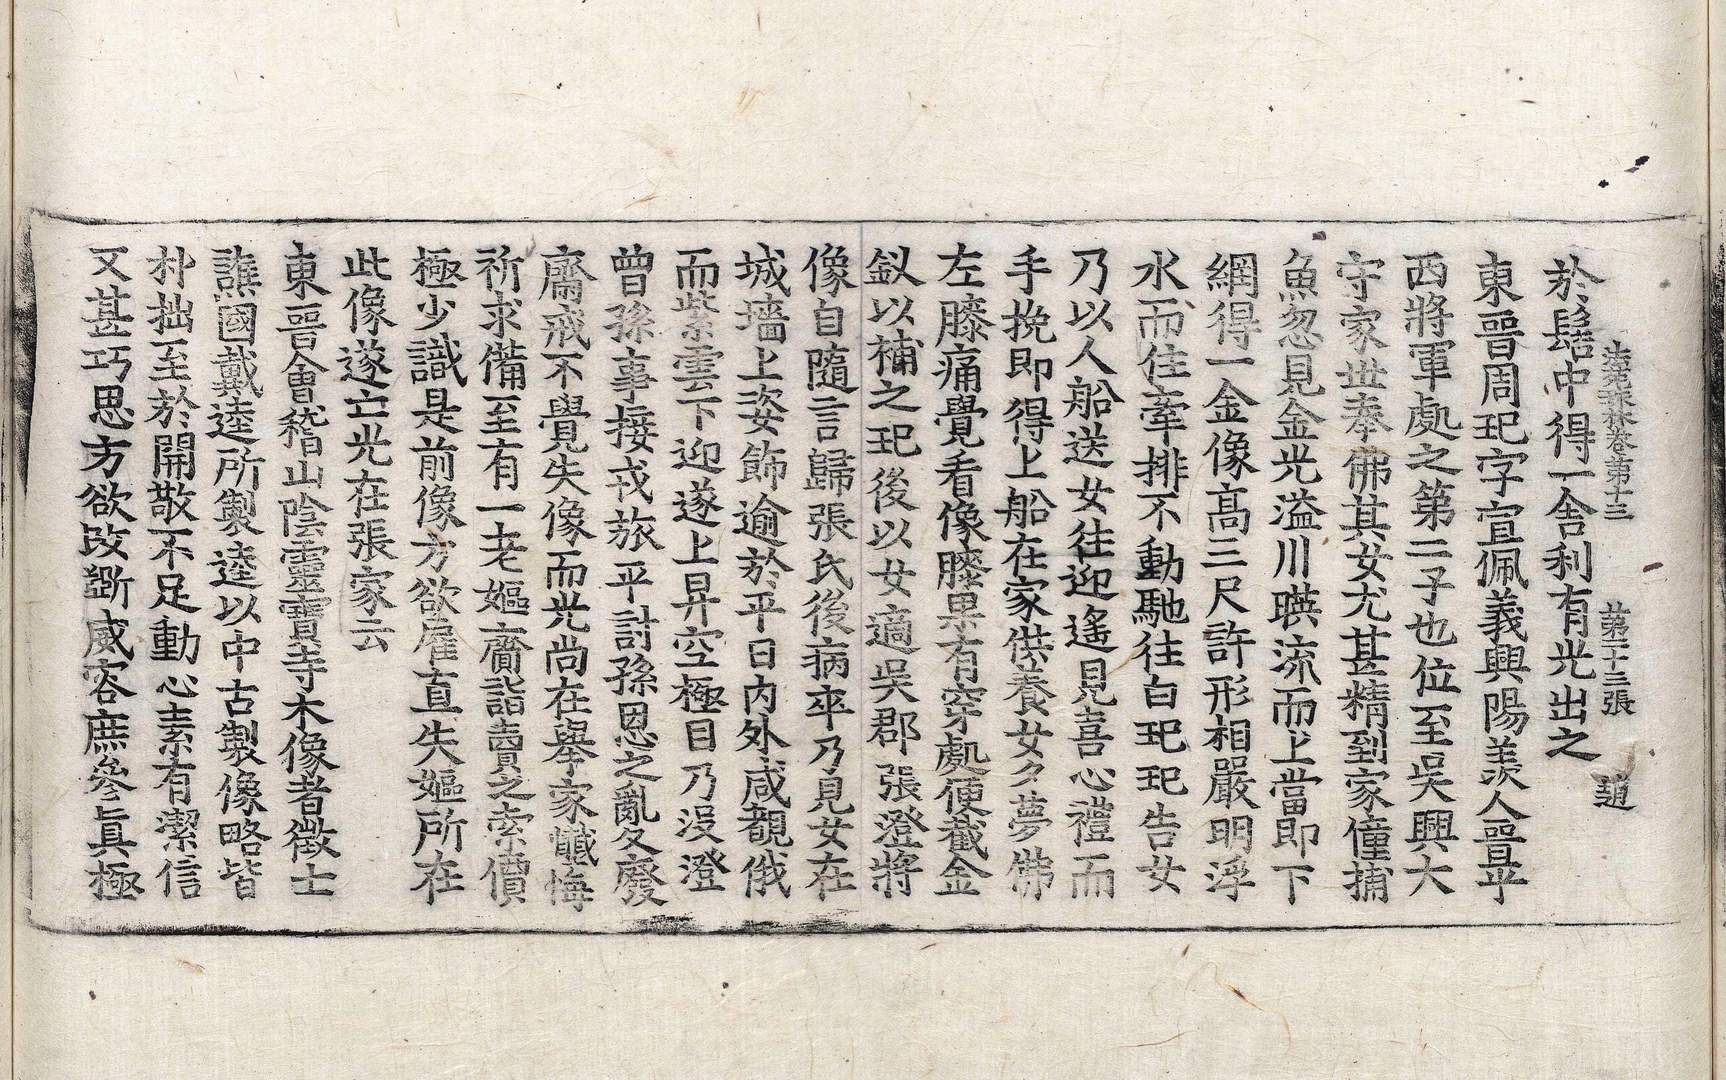 法苑珠林卷第十三　第二十三張　趙
於髻中得一舍利有光出之
東晉周玘字宣佩義興陽羨人晉平
西將軍處之第二子也位至吳興大
守家世奉佛其女尤甚精到家僮捕
魚忽見金光溢川暎流而上當即下
網得一金像高三尺許形相嚴明浮
水而住牽排不動馳往白玘玘告女
乃以人船送女往迎遙見喜心禮而
手挽即得上船在家供養女夕夢佛
左膝痛覺看像膝果有穿處便截金
釵以補之玘後以女適吳郡張澄將
像自隨言歸張氏後病卒乃見女在
城墻上姿飾逾於平日內外咸覩俄
而紫雲下迎遂上昇空極目乃沒澄
曾孫事接戎旅平討孫恩之亂久廢
齋戒不覺失像而光尚在舉家懺悔
祈求備至有一老嫗齎詣賣之索價
極少識是前像方欲雇直失嫗所在
此像遂亡光在張家云
東晉會稽山陰靈寶寺木像者徵士
譙國戴逵所製逵以中古製像略皆
朴拙至於開敬不足動心素有潔信
又甚巧思方欲改斲威容庶參真極